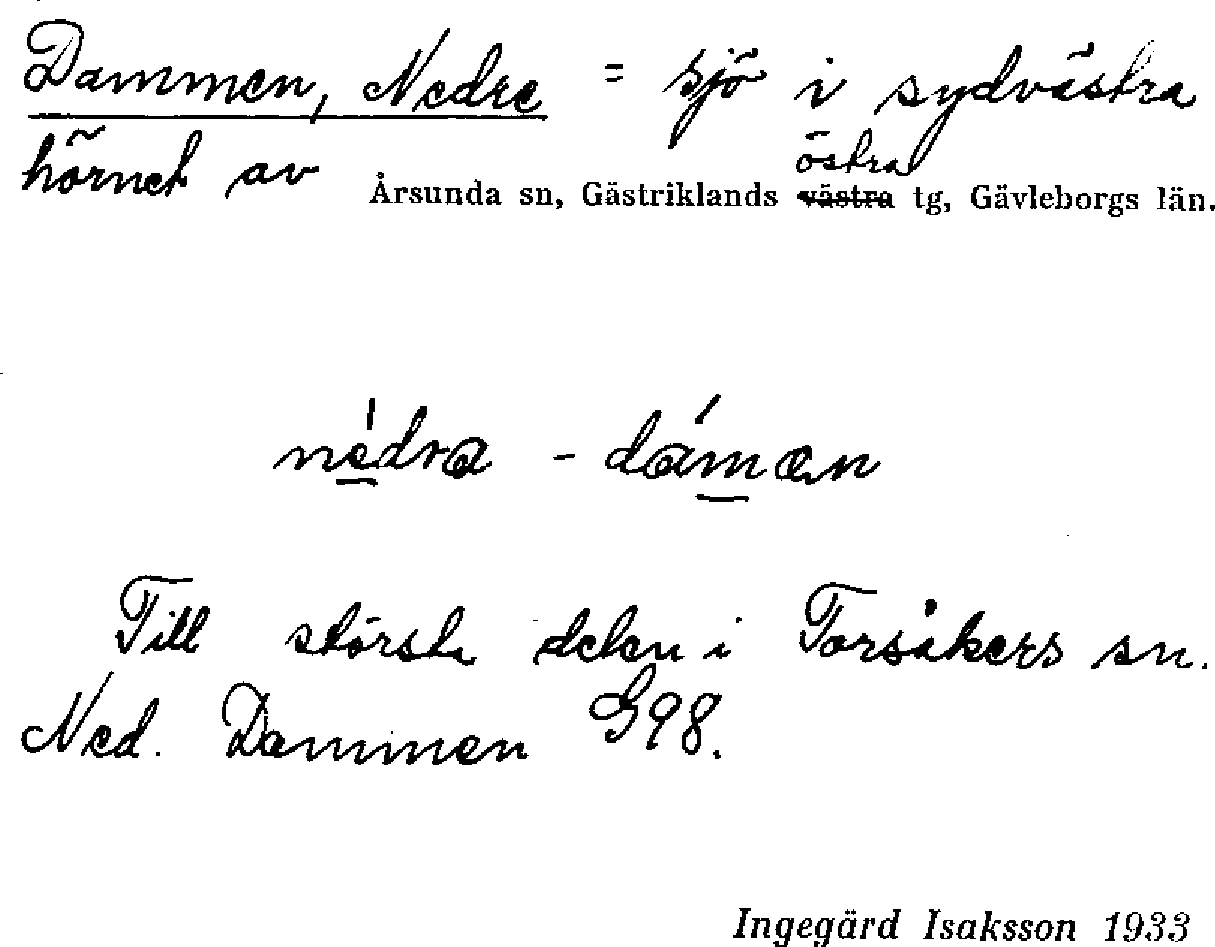 Dammen, Nedre = sjö i sydvästra
hörnet av Årsunda sn, Gästriklands östra västra tg, Gävleborgs län.
nèdra - dámen
Till största delen i Torsåkers sn.
Ned. Dammen G98.
Ingegärd Isaksson 1933